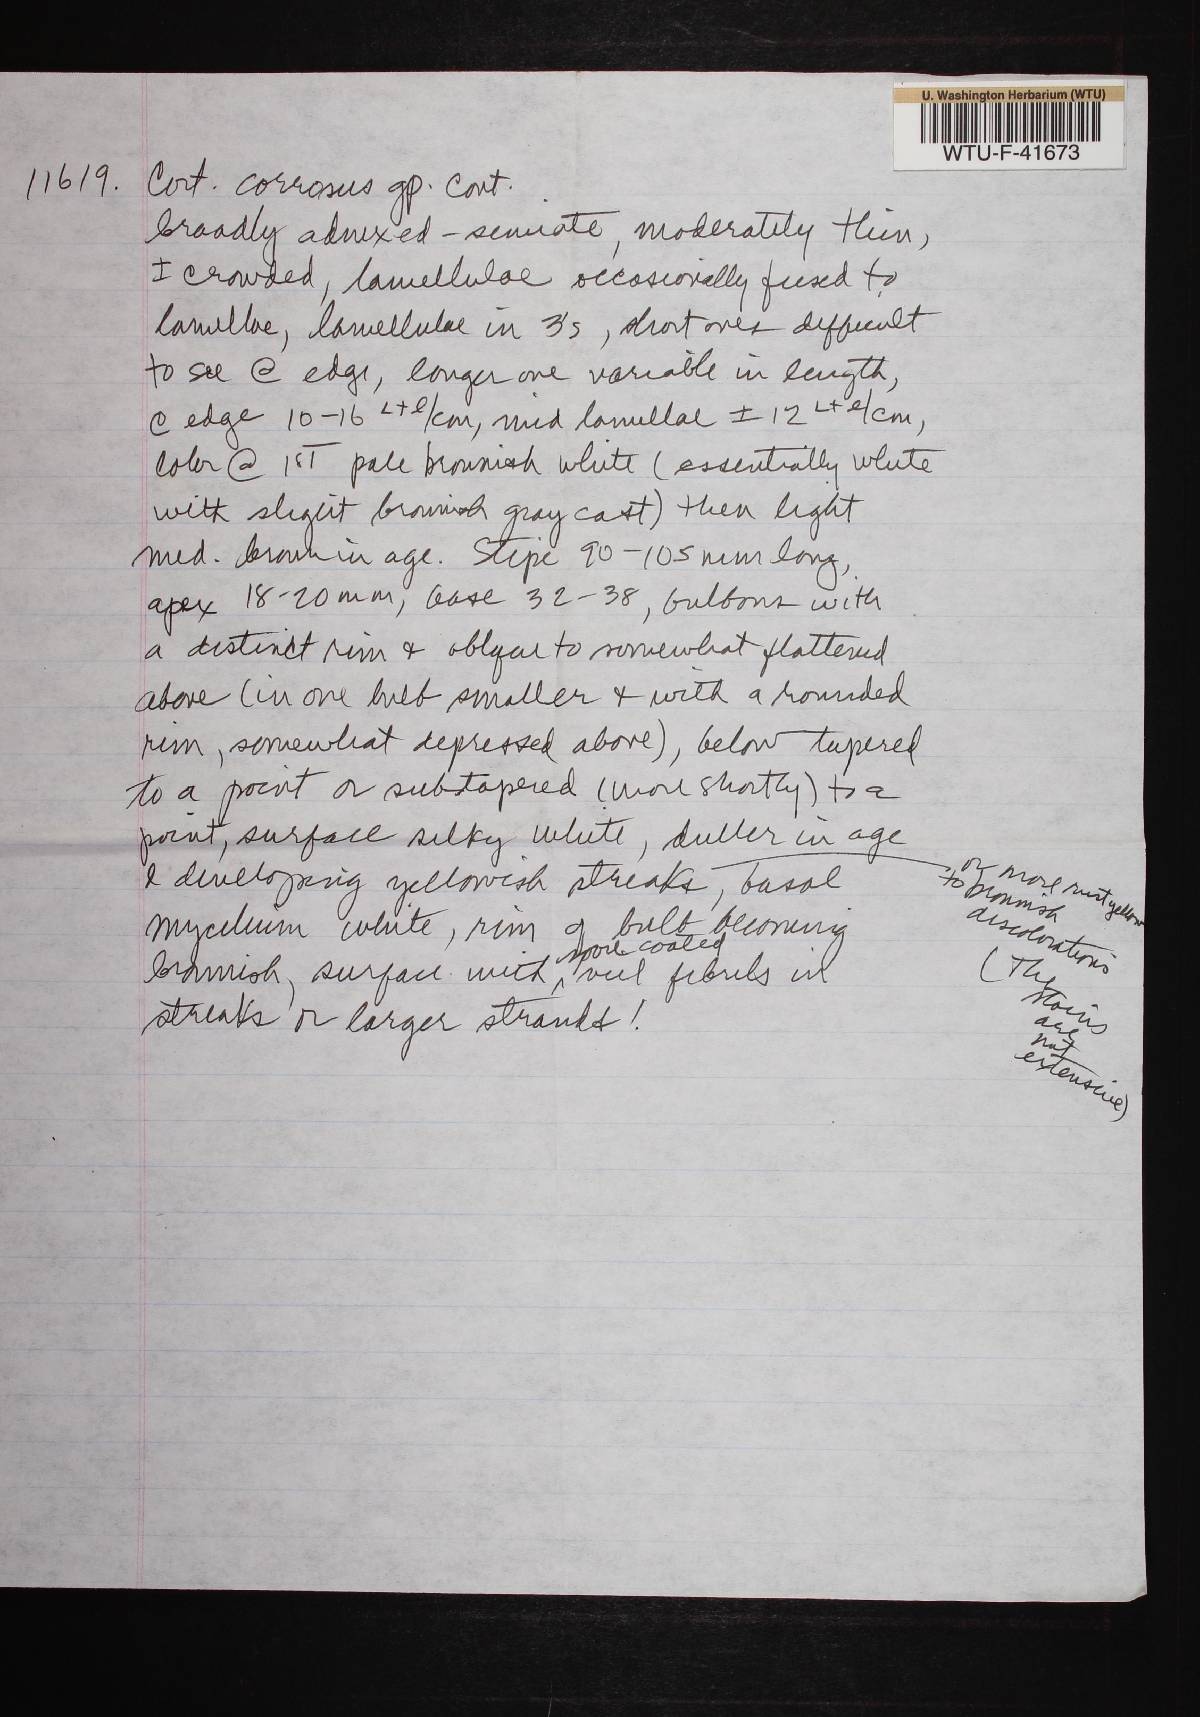 U. Washington Herbarium (WTU)
WTU-F-41673
11619. Cort. corrosus gp. cont.
broadly adnexed - semiate, moderately thin,
± crowded, lamellulae occasionally fused to
lamellae, lamellulae in 3's, short ones difficult
to see @ edge, longer one variable in length,
@ edge 10-16 L+l/cm, mid lamellae ± 12 L+l/cm,
color @ 1ST pale brownish white (essentially white
with slight brownish gray cast) then light
med. brown in age. Stipe 90-105 mm long,
apex 18-20 mm, base 32-38, bulbous with
a distinct rim & oblique to somewhat flattened
above (in one bulb smaller & with a rounded
rim, somewhat depressed above), below tapered
to a point or subtapered (more shortly) to a
point, surface silky white, duller in age
& developing yellowish streaks, basal
or more rust yellow
to brownish
discolorations
(The
stains
are
not
extensive)
mycelium white, rim of bulb becoming
spore coated
brownish, surface with veil fibrils in
streaks or larger strands!